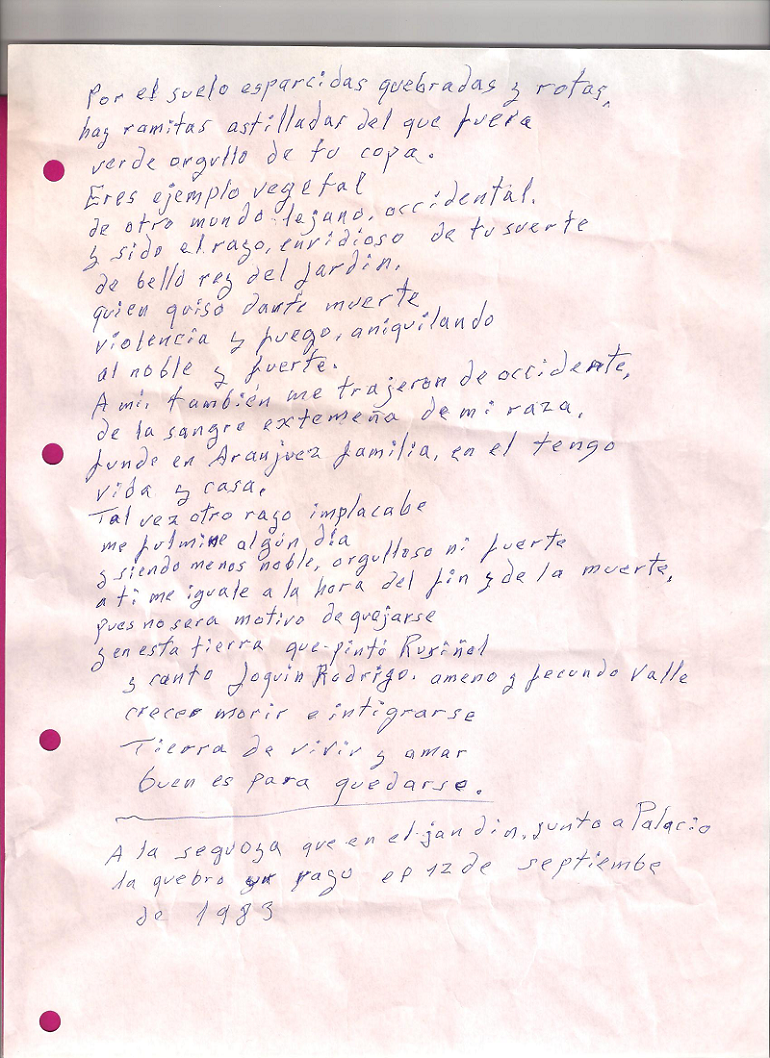 Por el suelo esparcidas quebradas y rotas,
hay ramitas astilladas del que fuera
verde orgullo de tu copa.
Eres ejemplo vegetal
de otro mundo lejano, occidental.
y sido el rayo, envidioso de tu suerte
de bello rey del jardin,
quien quiso darte muerte
violencia y fuego, aniquilando
al noble y fuerte.
A mi, también me trajeron de occidente,
de la sangre extemeña de mi raza,
funde en Aranjuez familia, en el tengo
vida y casa,
Tal vez otro rayo implacabe
me fulmine algún día
y siendo menos noble, orgulloso ni fuerte
a ti me iguale a la hora del fin y de la muerte,
pues no sera motivo de quejarse
y en esta tierra que pintó Rusiñol
y canto Joquin Rodrigo. ameno y fecundo valle
crecer morir e intigrarse
Tierra de vivir y amar
buen es para quedarse.
A la sequoya que en el jandin, junto a Palacio
la quebro un rayo el 12 de septiembe
de 1983